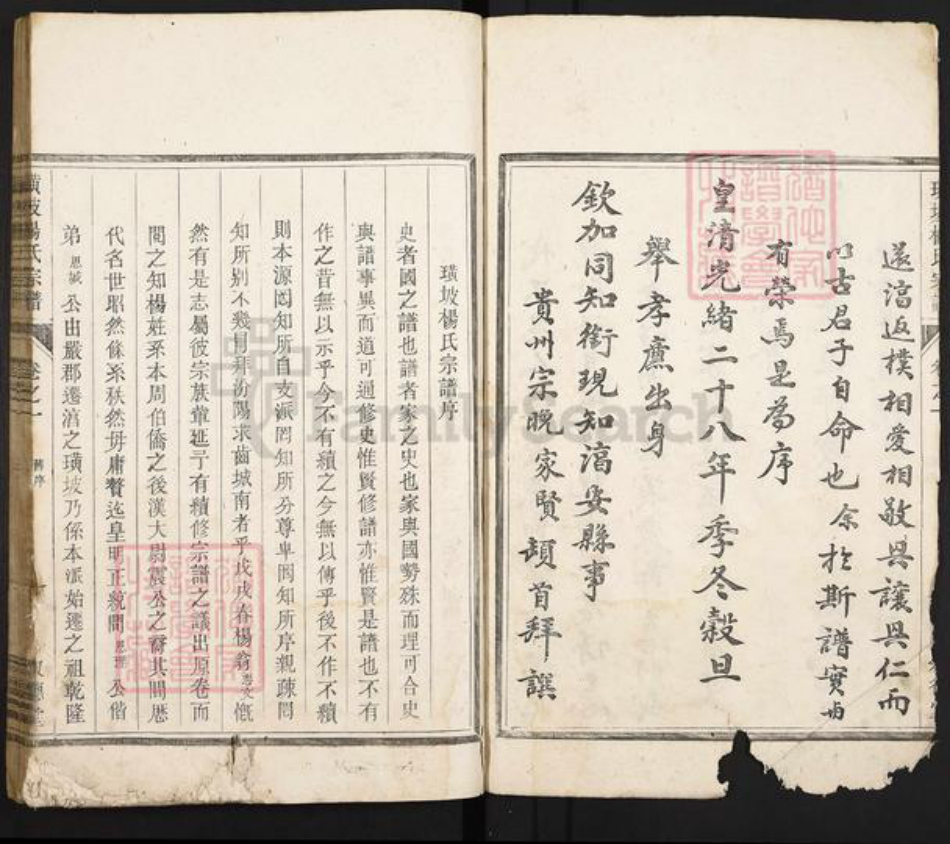 還滈返樸相愛相敬興讓興仁而
以古君子自命也余於斯譜實與
有榮焉是為序
皇清光緒二十八年季冬穀旦
舉孝廉出身
欽加同知銜現知滈安縣事
貴州宗晚家賢頓首拜譔
璜坡楊氏宗譜序
史者國之譜也譜者家之史也家與國勢殊而理可合史
與譜事異而道可通修史惟賢修譜亦惟賢是譜也不有
作之昔無以示乎今不有續之今無以傳乎後不作不續
則本源罔知所自支派罔知所分尊卑罔知所序親疎罔
知所別不幾同拜汾陽求齒城南者乎戊戌春楊翁 慨
然有是志屬彼宗族輩延予有續修宗譜之議出原卷而
閱之知楊姓系本周伯僑之後漢大尉震公之裔其間歷
代名世昭然條系秩然毋庸贅迄皇明正統間 公偕
弟思誠公由嚴郡遷滈之璜坡乃係本派始遷之祖乾隆
璜坡楊氏宗譜
卷之一
舊序
FamilySearch